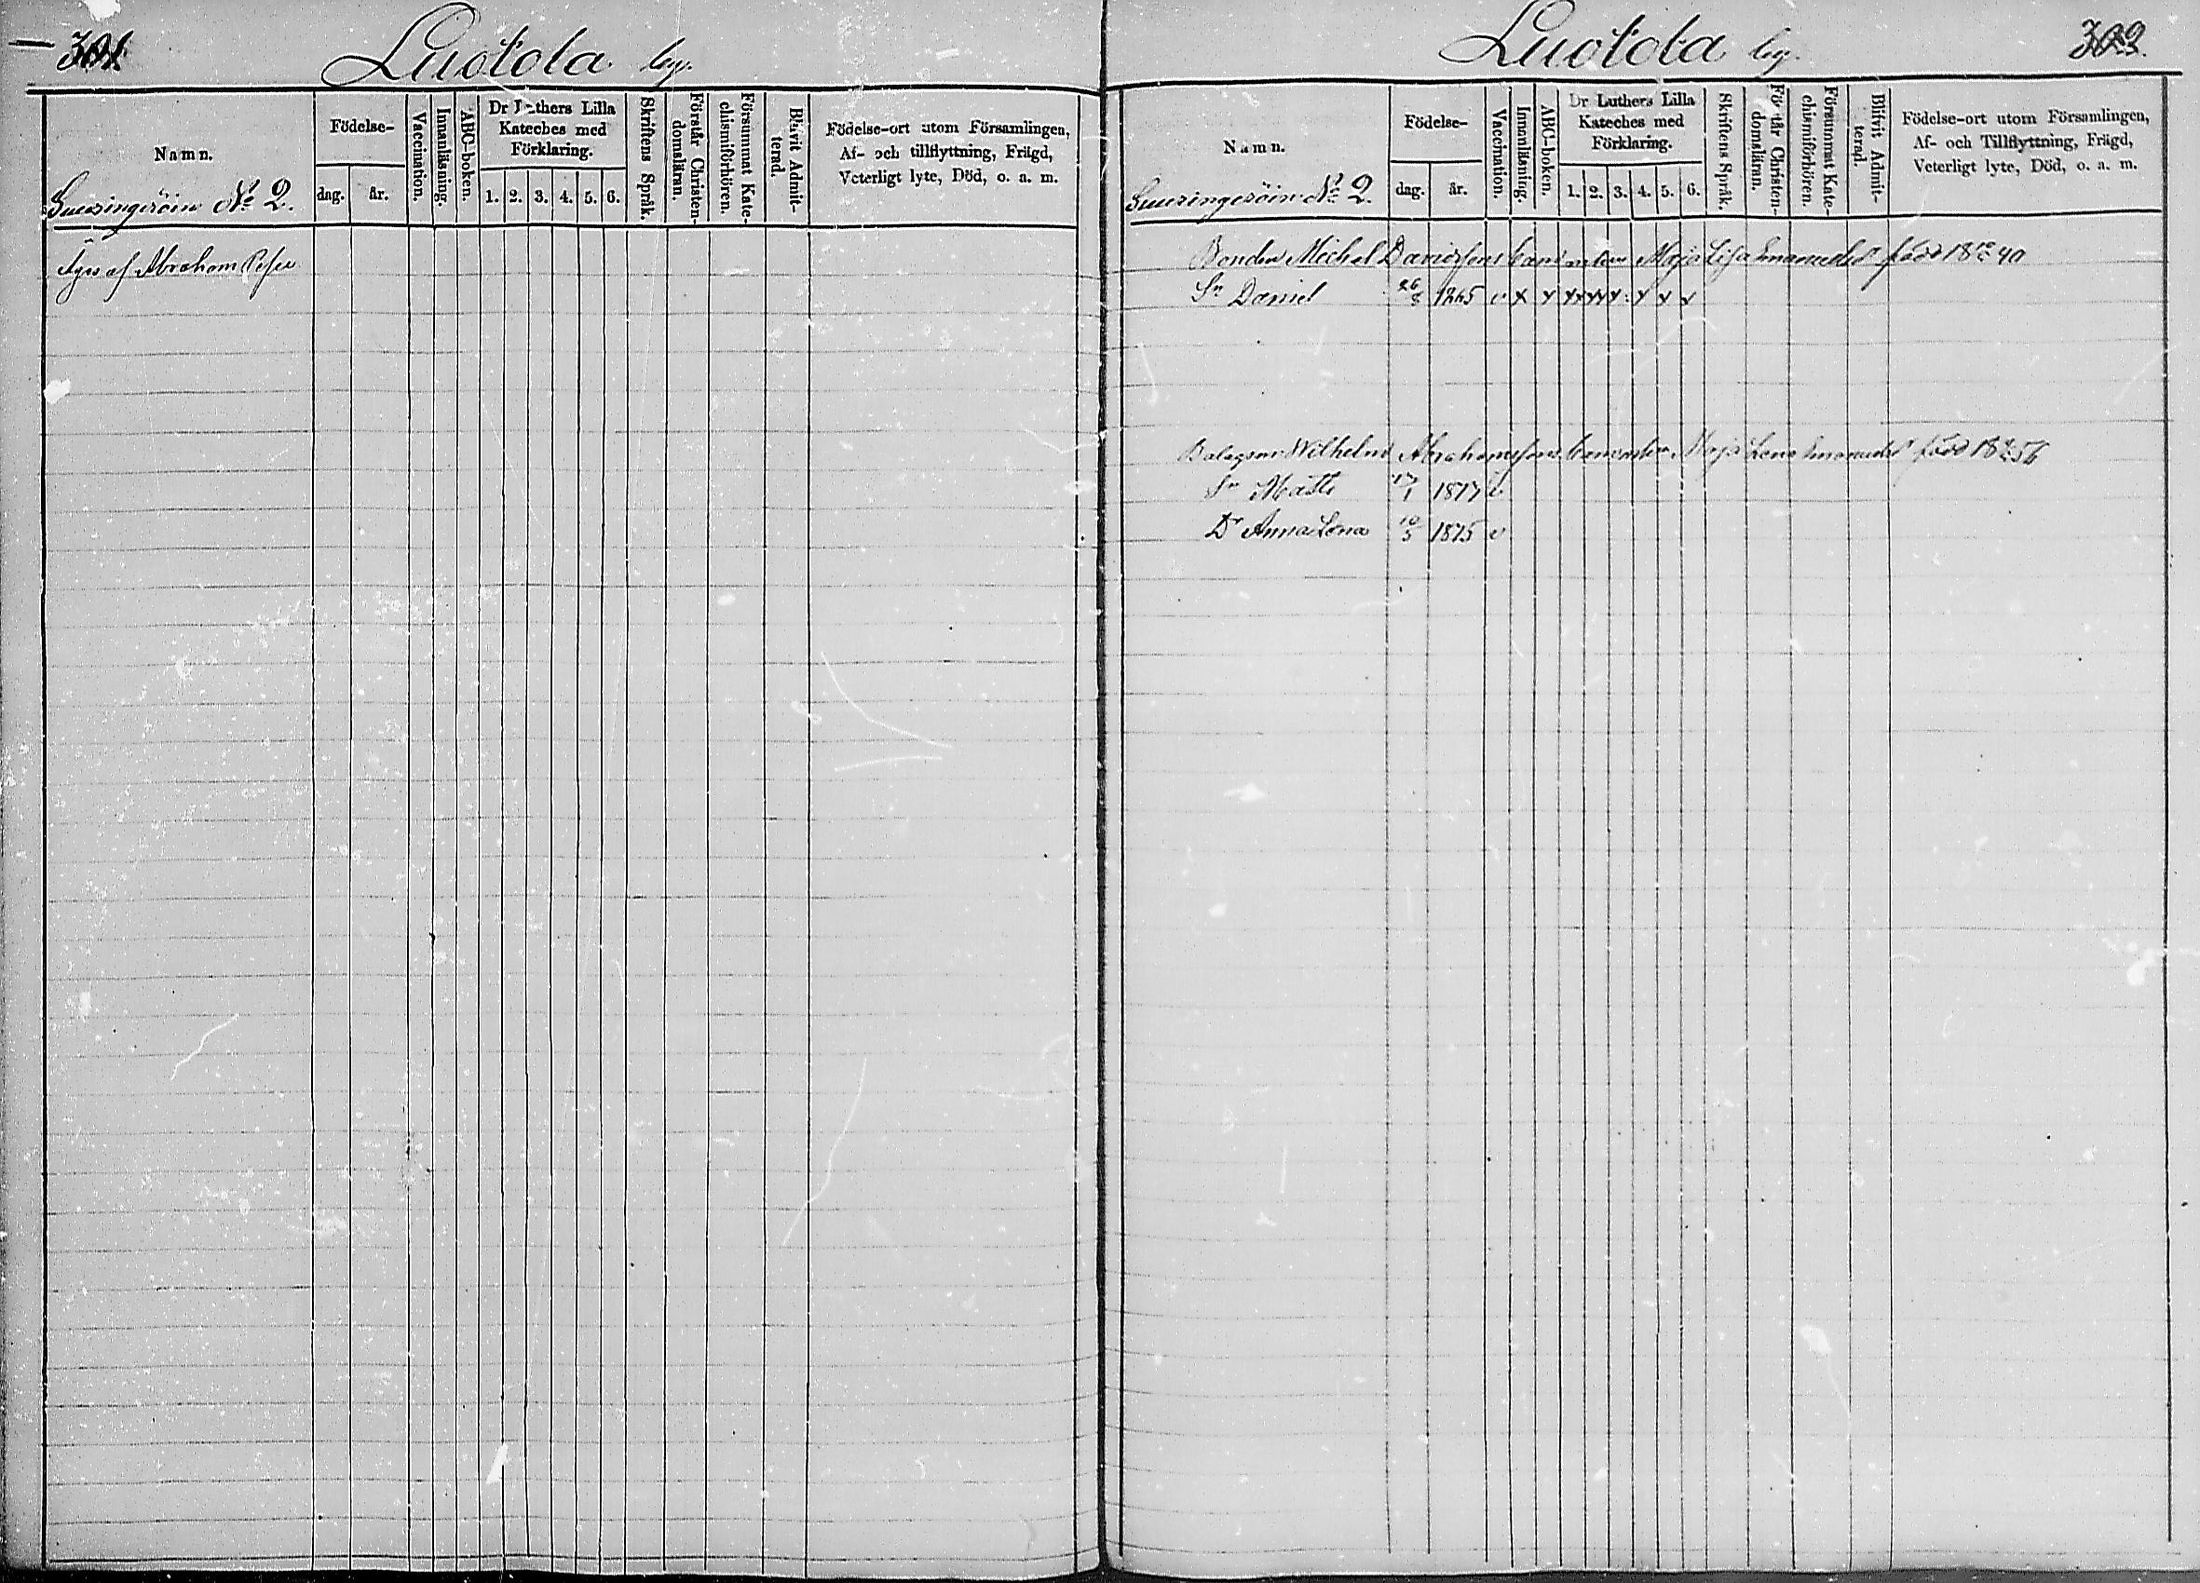 301.
Luotola by.
Namn.
Födelse-
dag.
år.
Vaccination.
Innanläsning.
ABC-boken.
Dr Luthers Lilla
Kateches med
Förklaring.
1. 2. 3. 4. 5. 6.
Skriftens Språk.
Förstår Christen-
domsläran.
Försummat Kate-
chismiförhören.
Blifvit Admit-
terad.
Födelse-ort utom Församlingen,
Af- och tillflyttning, Frägd,
Veterligt lyte, Död, o. a. m.
No 2.
Eges af Abraham
Luotola by.
Namn.
Födelse-
dag.
år.
Vaccination.
Innanläsning.
ABC-boken.
Dr Luthers Lilla
Kateches med
Förklaring.
1. 2. 3. 4. 5. 6.
Skriftens Språk.
Förstår Christen-
domsläran.
Försummat Kate-
chismiförhören.
Blifvit Admit-
terad.
Födelse-ort utom Församlingen,
Af- och Tillflyttning, Frägd,
Veterligt lyte, Död, o. a. m.
No 2.
Bonden Michel Davidsons barn m Maja Lisa Emanuelsd född 40
Sn Daniel 26/8 1865 v x x x x x x x x x
Bolagsm Wilhelm Abrahamssons barn Maja Lena Emanuelsd född 56
Sn Matts 17/1 1877 v
Dr Anna Lena 10/5 1875 v